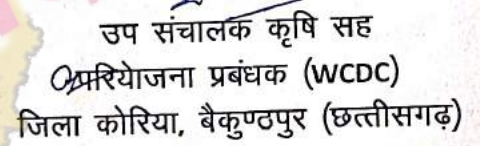 उप संचालक कृषि सह
परियोजना प्रबंधक (WCDC)
जिला कोरिया, बैकुण्ठपुर (छत्तीसगढ़)